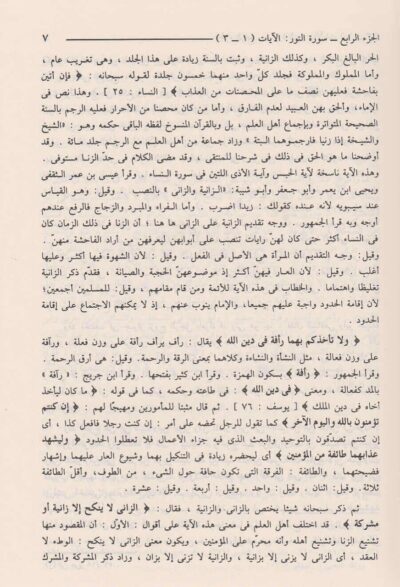 الجزء الرابع ــ سورة النور: الآيات ( ١ ــ ٣ ) ٧
الحر البالغ البكر ، وكذلك الزانية ، وثبت بالسنة زيادة على هذا الجلد ، وهى تغريب عام ،
وأما المملوك والمملوكة فجلد كلّ واحد منهما خمسون جلدة لقوله سبحانه : ﴿ فإن أتين
بفاحشة فعليهن نصف ما على المحصنات من العذاب ﴾ [ النساء : ٢٥ ] . وهذا نص فى
الإماء، وألحق بهن العبيد لعدم الفارق ، وأما من كان محصنا من الأحرار فعليه الرجم بالسنة
الصحيحة المتواترة وبإجماع أهل العلم ، بل وبالقرآن المنسوخ لفظه الباقى حكمه وهو : «الشيخ
والشيخة إذا زنيا فارجموهما البتة » وزاد جماعة من أهل العلم مع الرجم جلد مائة . وقد
أوضحنا ما هو الحق فى ذلك فى شرحنا للمنتقى ، وقد مضى الكلام فى حدّ الزنا مستوفى .
وهذه الآية ناسخة لآية الحبس وآية الأذى اللتين فى سورة النساء . وقرأ عيسى بن عمر الثقفى
ويحيى ابن يعمر وأبو جعفر وأبو شيبة: «الزانية والزانى » بالنصب . وقيل: وهو القياس
عند سيبويه لأنه عنده كقولك : زيدا اضرب . وأما الفراء والمبرد والزجاج فالرفع عندهم
أوجه وبه قرأ الجمهور . ووجه تقديم الزانية على الزانى ها هنا ؛ أن الزنا فى ذلك الزمان كان
فى النساء أكثر حتى كان لهنّ رايات تنصب على أبوابهن ليعرفهن من أراد الفاحشة منهنّ .
وقيل: وجه التقديم أن المرأة هى الأصل فى الفعل . وقيل : لأن الشهوة فيها أكثر وعليها
أغلب . وقيل : لأن العار فيهنّ أكثر إذ موضوعهنّ الحجبة والصيانة ، فقدّم ذكر الزانية
تغليظا واهتماما . والخطاب فى هذه الآية للأئمة ومن قام مقامهم ، وقيل: للمسلمين أجمعين؛
لأن إقامة الحدود واجبة عليهم جميعا، والإمام ينوب عنهم ، إذ لا يمكنهم الاجتماع على إقامة
الحدود .
﴿ ولا تأخذكم بهما رأفة فى دين الله ﴾ يقال : رأف يرأف رأفة على وزن فعلة ، ورآفة
على وزن فعالة ، مثل النشأة والنشاءة وكلاهما بمعنى الرقة والرحمة، وقيل: هى أرق الرحمة .
وقرأ الجمهور : ﴿ رأفة ﴾ بسكون الهمزة . وقرأ ابن كثير بفتحها . وقرأ ابن جريج : « رآفة »
بالمد كفعالة ، ومعنى ﴿ فى دين الله ﴾ : فى طاعته وحكمه ، كما فى قوله : ﴿ ما كان ليأخذ
أخاه فى دين الملك ﴾ [ يوسف : ٧٦ ] . ثم قال مثبتا للمأمورين ومهيجا لهم : ﴿ إن كنتم
تؤمنون بالله واليوم الآخر ﴾ كما تقول للرجل تحضه على أمر : إن كنت رجلا فافعل كذا ، أى
إن كنتم تصدّقون بالتوحيد والبعث الذى فيه جزاء الأعمال فلا تعطلوا الحدود ﴿ وليشهد
عذابهما طائفة من المؤمنين ﴾ أى ليحضره زيادة فى التنكيل بهما وشيوع العار عليهما وإشهار
فضيحتهما ، والطائفة : الفرقة التى تكون حافة حول الشىء ، من الطوف، وأقلّ الطائفة
ثلاثة . وقيل: اثنان . وقيل : واحد . وقيل : أربعة . وقيل : عشرة .
ثم ذكر سبحانه شيئا يختص بالزانى والزانية ، فقال : ﴿ الزانى لا ينكح إلا زانية أو
مشركة ﴾ . قد اختلف أهل العلم فى معنى هذه الآية على أقوال : الأوّل : أن المقصود منها
تشنيع الزنا وتشنيع أهله وأنه محرّم على المؤمنين ، ويكون معنى الزانى لا ينكح : الوطء لا
العقد ، أى الزانى لا يزنى إلا بزانية ، والزانية لا تزنى إلا بزان ، وزاد ذكر المشركة والمشرك